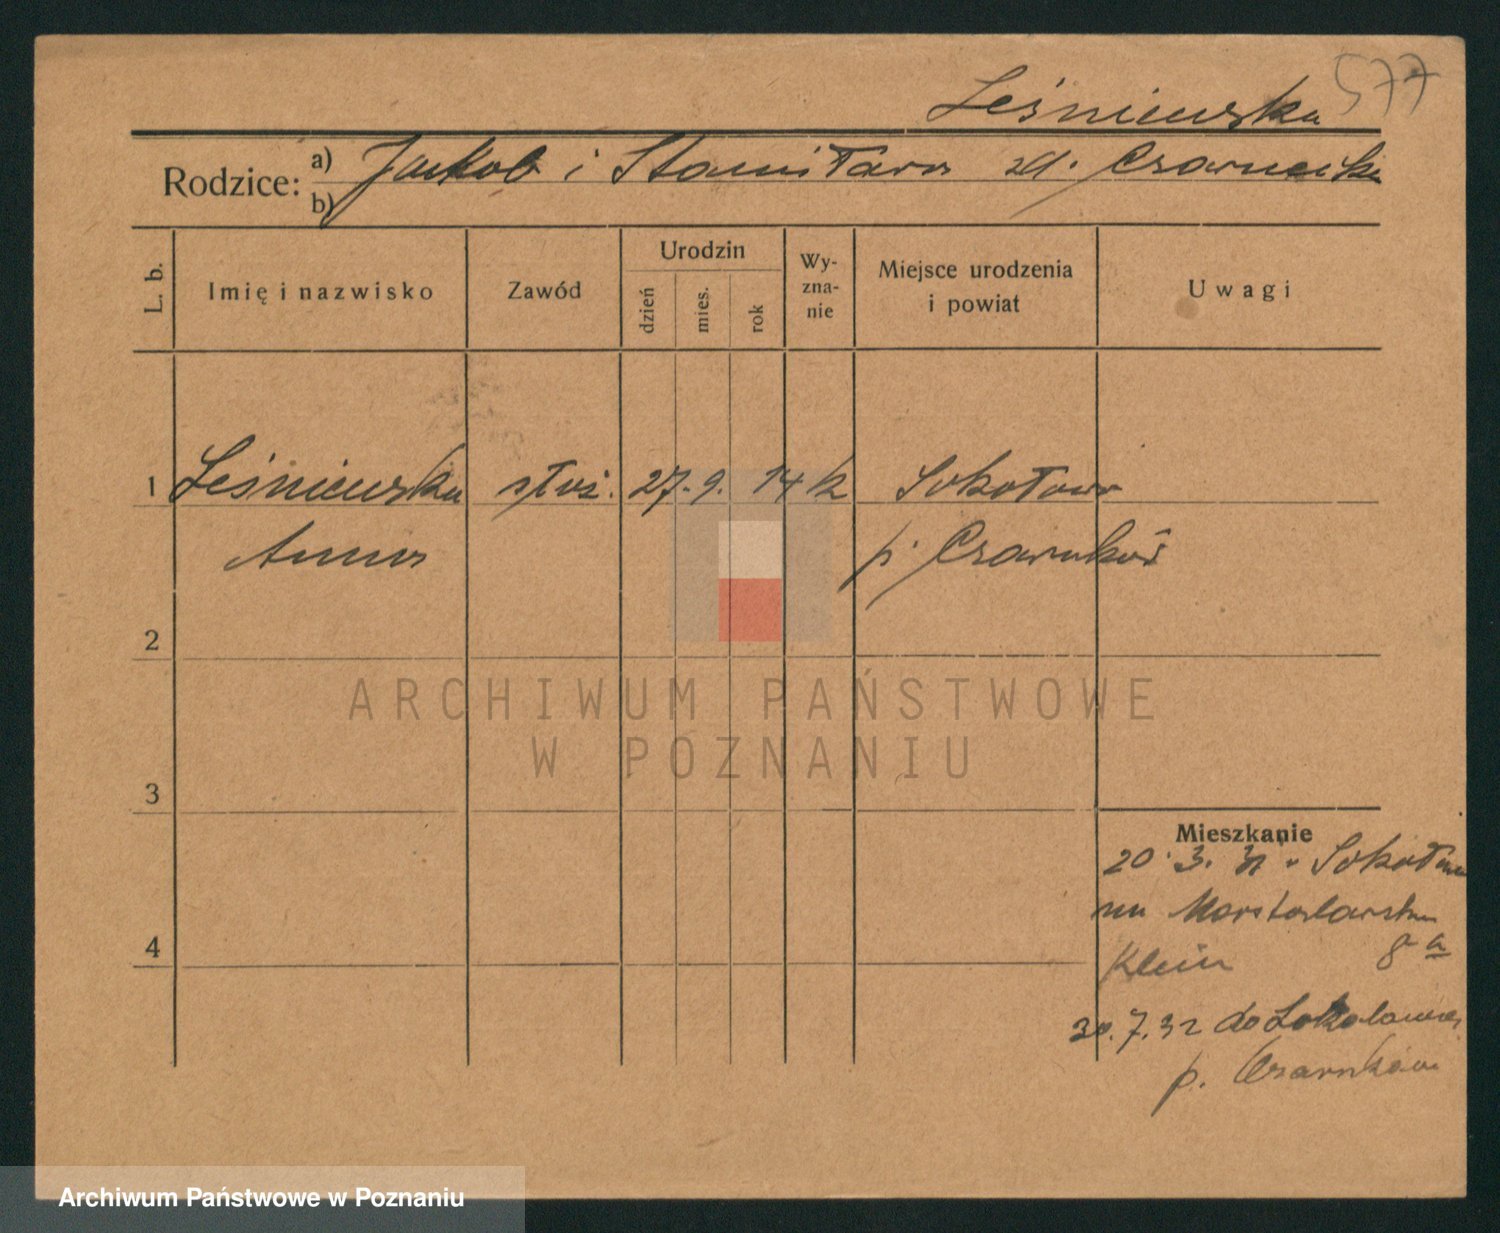 577
Leśniewska
Rodzice: a) Jakob i Stanisława zd. Czarnecka
b)
L. b. Imię i nazwisko Zawód Urodzin dzień mies. rok Wyznanie Miejsce urodzenia i powiat Uwagi
1 Leśniewska służ. 27. 9. 14 k Sokołowo
Anna p. Czarnków
2
ARCHIWUM PAŃSTWOWE
W POZNANIU
3
Mieszkanie
20. 3. Sokołowa
Klein
4
30. 7. 32 do Sokolowa
p. Czarnków
Archiwum Państwowe w Poznaniu